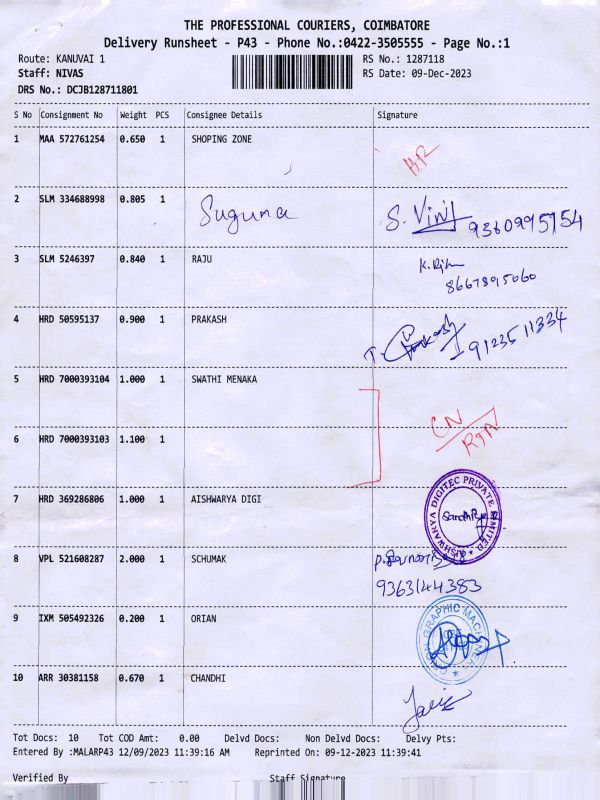 THE PROFESSIONAL COURIERS, COIMBATORE
Delivery Runsheet - P43 - Phone No.:0422-3505555 - Page No.:1
Route: KANUVAI 1 RS No.: 1287118
Staff: NIVAS RS Date: 09-Dec-2023
DRS No.: DCJB128711801
S No Consignment No Weight PCS Consignee Details Signature
1 MAA 572761254 0.650 1 SHOPING ZONE
2 SLM 334688998 0.805 1 Suguna S. Vinit 9360995954
3 SLM 5246397 0.840 1 RAJU
8667895060
4 HRD 50595137 0.900 1 PRAKASH
9123511334
5 HRD 7000393104 1.000 1 SWATHI MENAKA
CN/RTN
6 HRD 7000393103 1.100 1
7 HRD 369286806 1.000 1 AISHWARYA DIGI
AISHWARYA DIGITEC PRIVATE LIMITED
8 VPL 521608287 2.000 1 SCHUMAK
9363144383
9 IXM 505492326 0.200 1 ORIAN
10 ARR 30381158 0.670 1 CHANDHI
Tot Docs: 10 Tot COD Amt: 0.00 Delvd Docs: Non Delvd Docs: Delvy Pts:
Entered By :MALARP43 12/09/2023 11:39:16 AM Reprinted On: 09-12-2023 11:39:41
Verified By Staff Signature